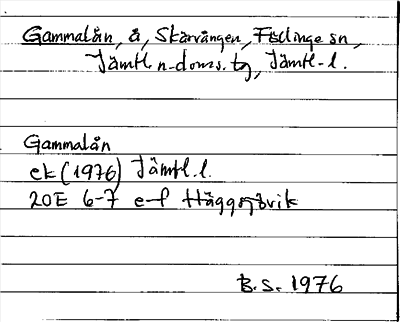 Gammalån, å, Skärvången, Föllinge sn,
Jämtl. n. doms. tg, Jämtl. l.
Gammalån
ek (1976) Jämtl. l.
20E 6-7 e-f Häggsjövik
B. S. 1976